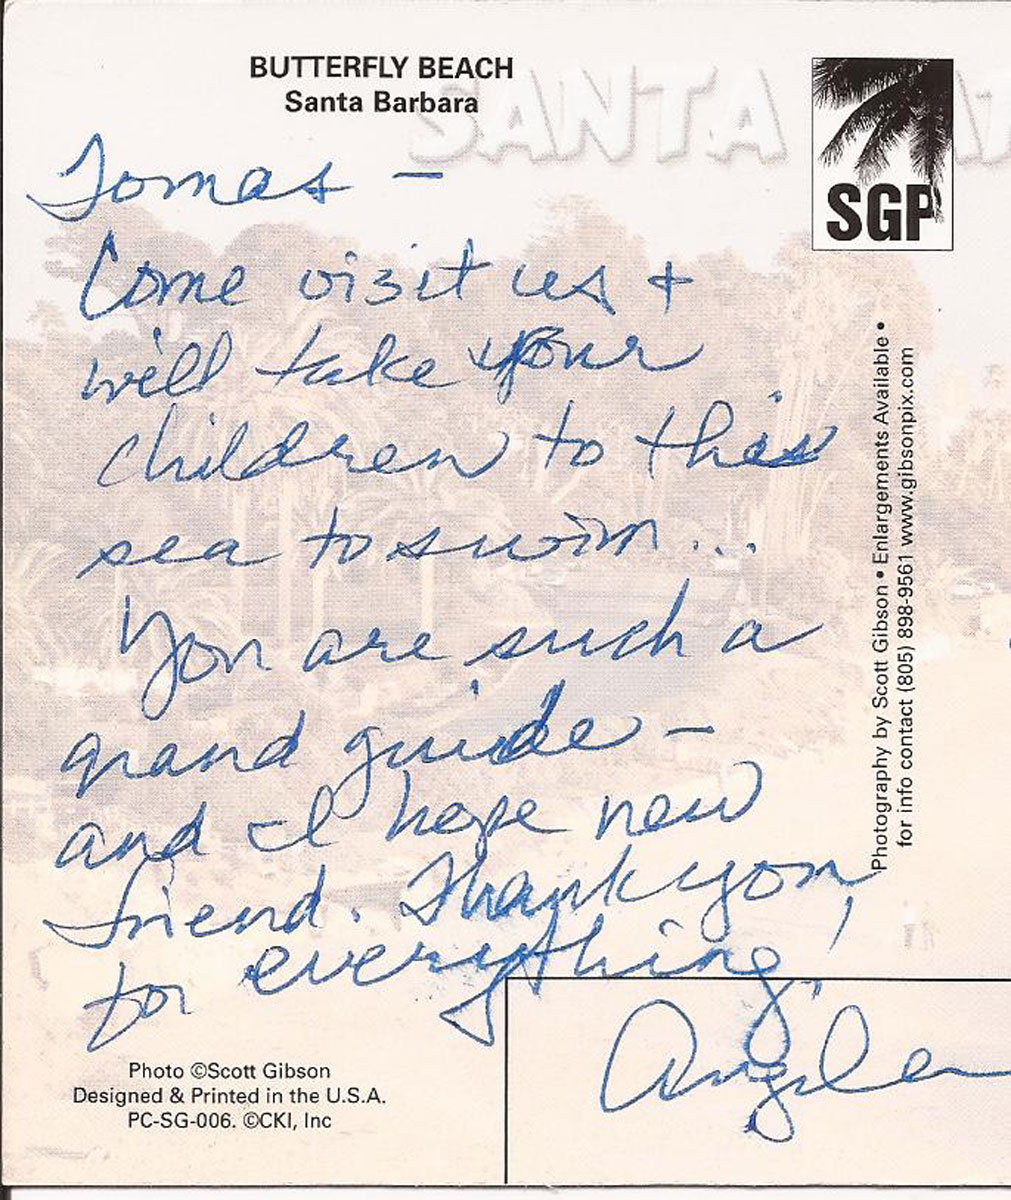 BUTTERFLY BEACH
Santa Barbara
SANTA
SGP
Tomas –
Come visit us +
will take your
children to this
sea to swim...
You are such a
grand guide –
and I hope new
friend. Thank you
for everything!
Angela
Photography by Scott Gibson • Enlargements Available •
for info contact (805) 898-9561 www.gibsonpix.com
Photo ©Scott Gibson
Designed & Printed in the U.S.A.
PC-SG-006. ©CKI, Inc